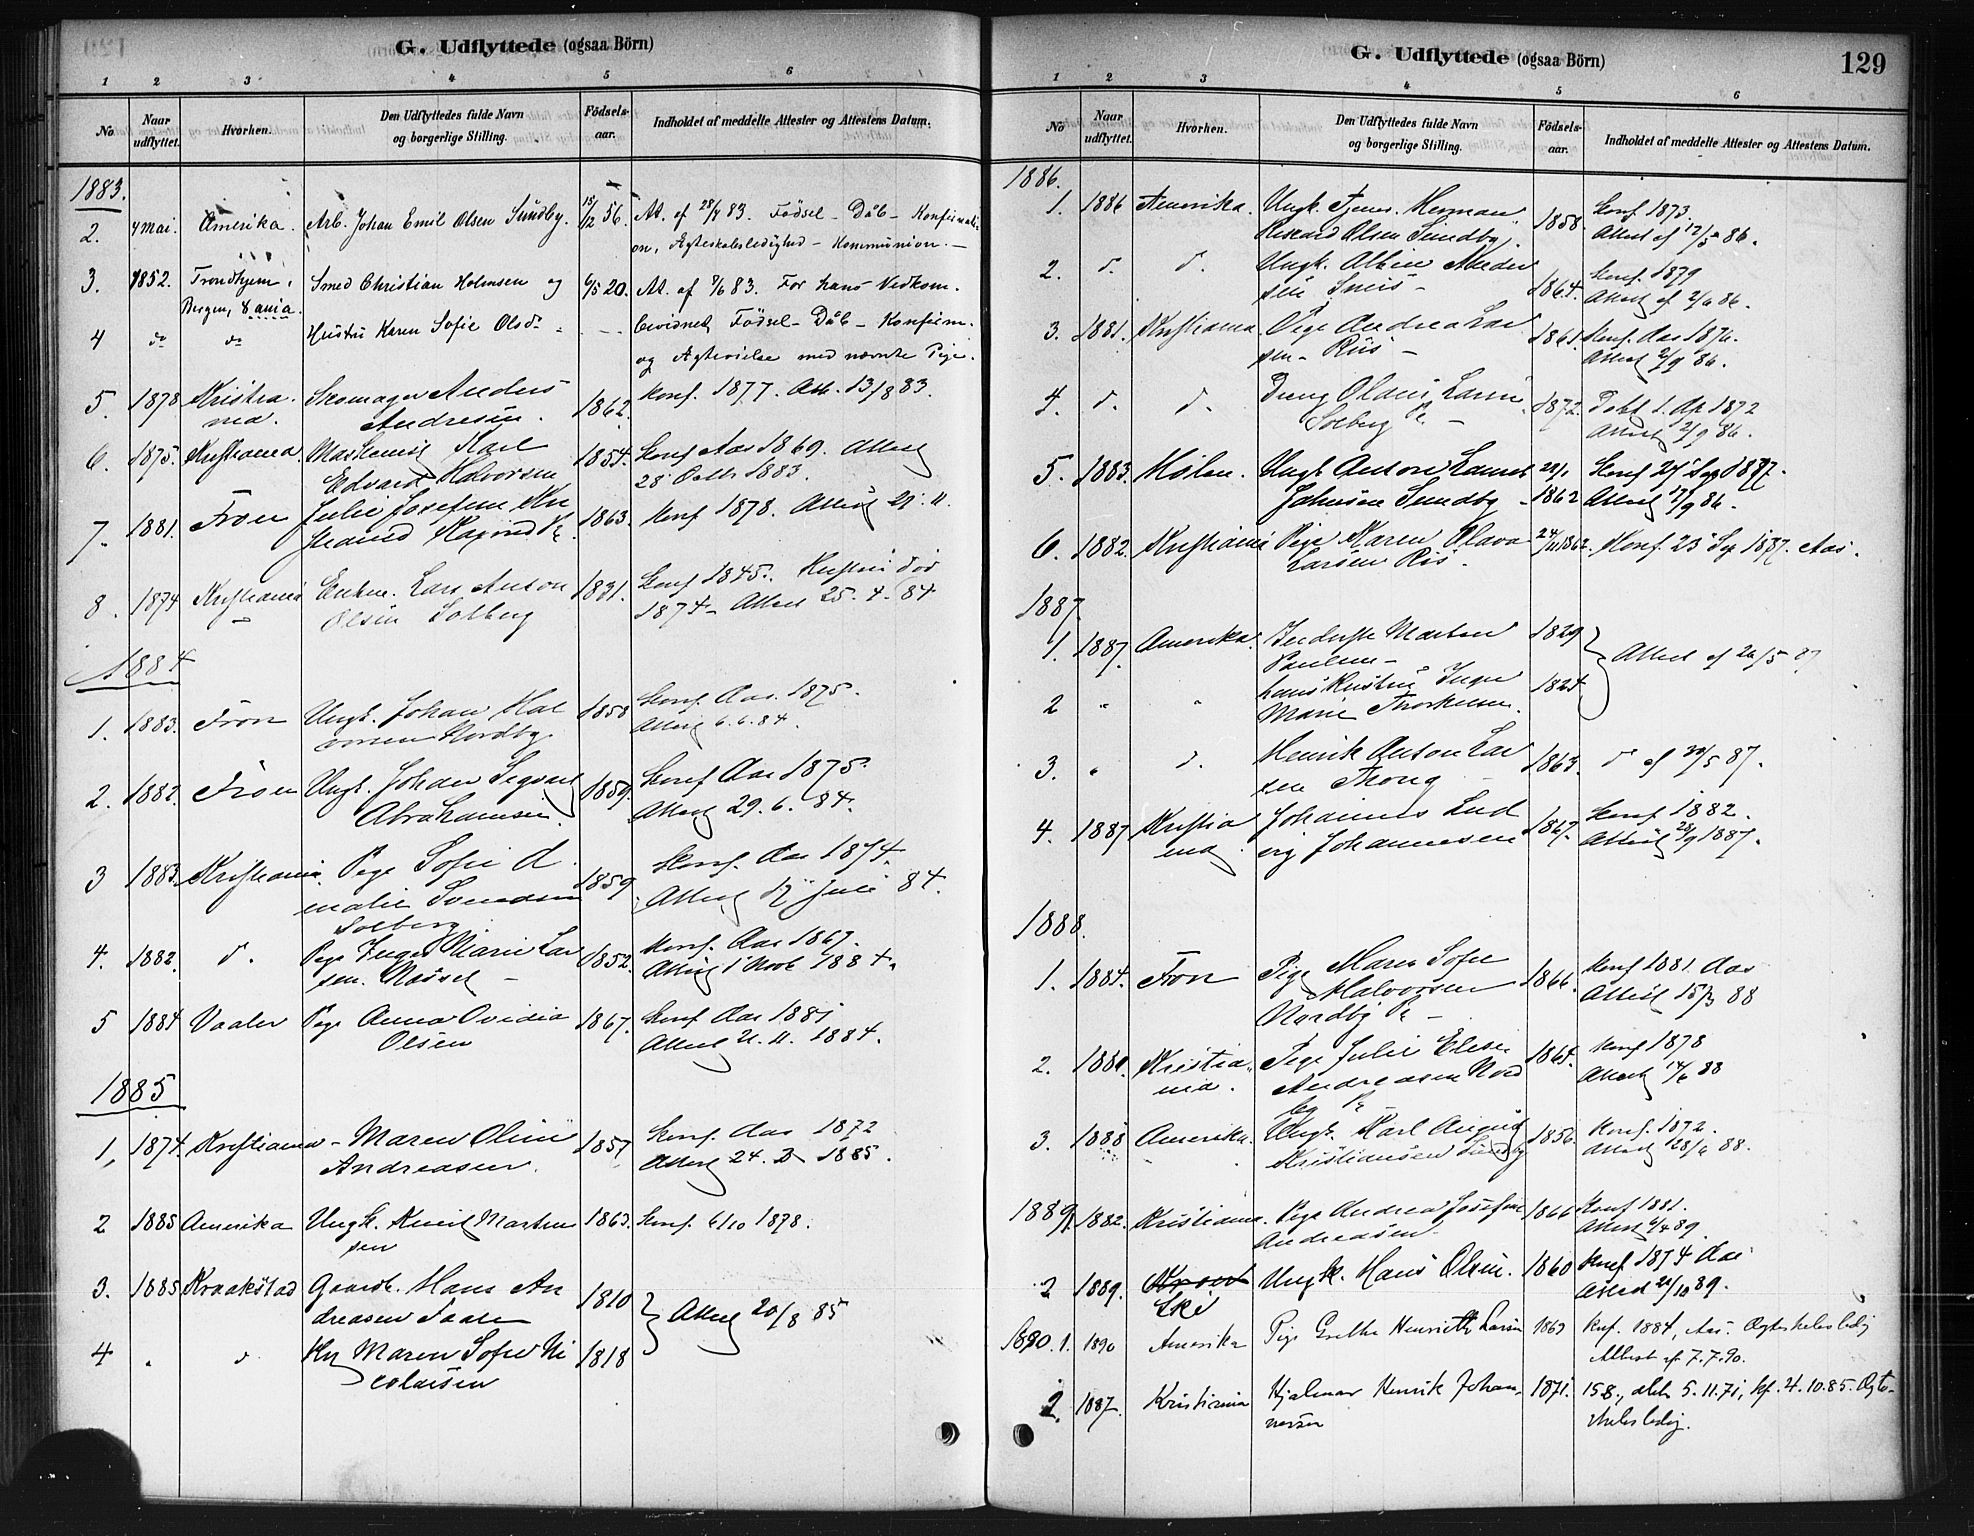 G. Udflyttede (ogsaa Börn)
1 2 3 4 5 6
No Naar udflyttet. Hvorhen. Den Udflyttedes fulde Navn og borgerlige Stilling. Födsels-aar. Indholdet af meddelte Attester og Attestens Datum.
1883.
2. 4 Mai. Amerika. Arb. Johan Emil Olsen Sundby. 15/12 56. At. af 28/4 83. Fødsel - Dåb - Konfirmati-
on, Ægteskabsledighed - Kommunion. -
3. 1852. Trondhjem, Smed Christian Holmsen og 6/5 20. At. af 9/6 83. For hans Vedkom.
Bergen, Xania.
4 do do Hustru Karen Sofie Olsd. - - bevidnet Fødsel - Dåb - Konfirm.
og Ægtevielse med nævnte Pige.
5. 1878 Kristia- Skomager Anders 1862. Konf. 1877. Att. 13/8 83.
nia. Andresen.
6. 1875. Kristiania. Maskinist Karl 1854. Konf Aas 1869. Attest
Edvard Halvorsen 28 Octb. 1883.
7. 1881. Fron Julie Josefine 1863. Konf 1878. Attest 29. 11.
8. 1874 Kristiania Enkem. Lars Anton 1831. Konf 1845. Hustru død
Olsen Solberg 1874 - Attest 25. 4. 84
1884
1. 1883. Fron Ungk. Johan Hal 1858 Konf. Aas. 1875.
vorsen Nordby Attest 6. 6. 84.
2. 1882. Fron Ungk. Johan Sigvart 1859. Konf Aas 1875.
Abrahamsen. Attest 29. 6. 84.
3 1883. Kristiania. Pige Sofie A 1859 Konf. Aas 1874.
malie Svendsen Attest 17 Juli 84.
Solberg
4. 1882. d. Pige Inger Marie Lar 1852. Konf. Aas 1867.
sen. Attest 1 Novb 1884.
5 1884 Vaaler Pige Anna Ovidia 1867. Konf Aas 1881
Olsen Attest 21. 11. 1884.
1885
1, 1874. Kristiania - Maren Oline 1857 Konf. Aas 1872
Andreasen. Attest 24. 3 1885.
2 1885 Amerika Ungk. Emil Marten 1863. Konf. 6/10 1878.
sen
3. 1885 Kraakstad Gaardb. Hans An 1810 } Attest 20/8 85
dreasen Taare
4 " d Hu Maren Sofie Ni 1818
colaisen
G. Udflyttede (ogsaa Börn) 129
1 2 3 4 5 6
No Naar udflyttet. Hvorhen. Den Udflyttedes fulde Navn og borgerlige Stilling. Födsels-aar. Indholdet af meddelte Attester og Attestens Datum.
1886.
1. 1886 Amerika. Ungk. Tjener. Herman 1858. Konf 1873.
Rikard Olsen Sundby. Attest af 12/5 86.
2. d. d. Ungk. Albin Ander 1864. Konf. 1879
sen Attest af 2/6 86.
3. 1881. Kristiania Pige Andrea Lar 1861. Konf. Aas 1876.
sen - Riis - Attest 2/9 86.
4. d. d. Dreng Olaus Larsen 1872. Døbt 1. Ap 1872
Solberg Attest 2/9 86.
5. 1883. Hølen. Ungk Anton 28/1 Konf 24 Sep 1877.
Johnsen Sundby - 1862 Attest 17/9 86.
6. 1882. Kristiania Pige Karen Olava 24/11 1862. Konf. 23 Sep 1877. Aas.
Larsen Riis.
1887.
1. 1887. Amerika. Inderste Marten 1829 } Attest af 26/5 87
Paulsen -
2 " " hans Hustru Inger 1824
Marie Thorkelsen.
3. " d. Henrik Anton Lar 1863. d af 30/5 87.
sen Thong
4. 1887 Kristia Johannes Lud 1867. Konf 1882.
nia vig Johannesen Attest 28/9 1887.
1888.
1. 1884. Fron Pige Maren Sofie 1866. Konf 1881 Aas
Halvorsen Attest 15/3 88
Nordby
2. 1881 Kristia- Pige Julie Elise 1864. Konf 1878
nia. Andreasen Nord Attest 14/6 88
by
3. 1888 Amerika. Ungk. Karl August 1856. Konf. 1872.
Kristiansen Sundby Attest 28/6 88.
1889/1 1882. Kristiania. Pige Andrea Josefine 1866 Konf 1881.
Andreasen Attest 6/4 89.
2 1889. Ungk. Hans Olsen. 1860 Konf 1874 Aas
Ski Attest 21/10 89.
1890. 1. 1890 Amerika Pige Grethe Henriette Larsen 1869 Knf. 1884, Aas. Ægteskabsledig
Attest af 7.7.90.
2. 1887. Kristiania Hjalmar Henrik Johan- 1871. 15 8., døbt 5.11.71, kf. 4.10.85. Ægte-
nessen skabsledig.